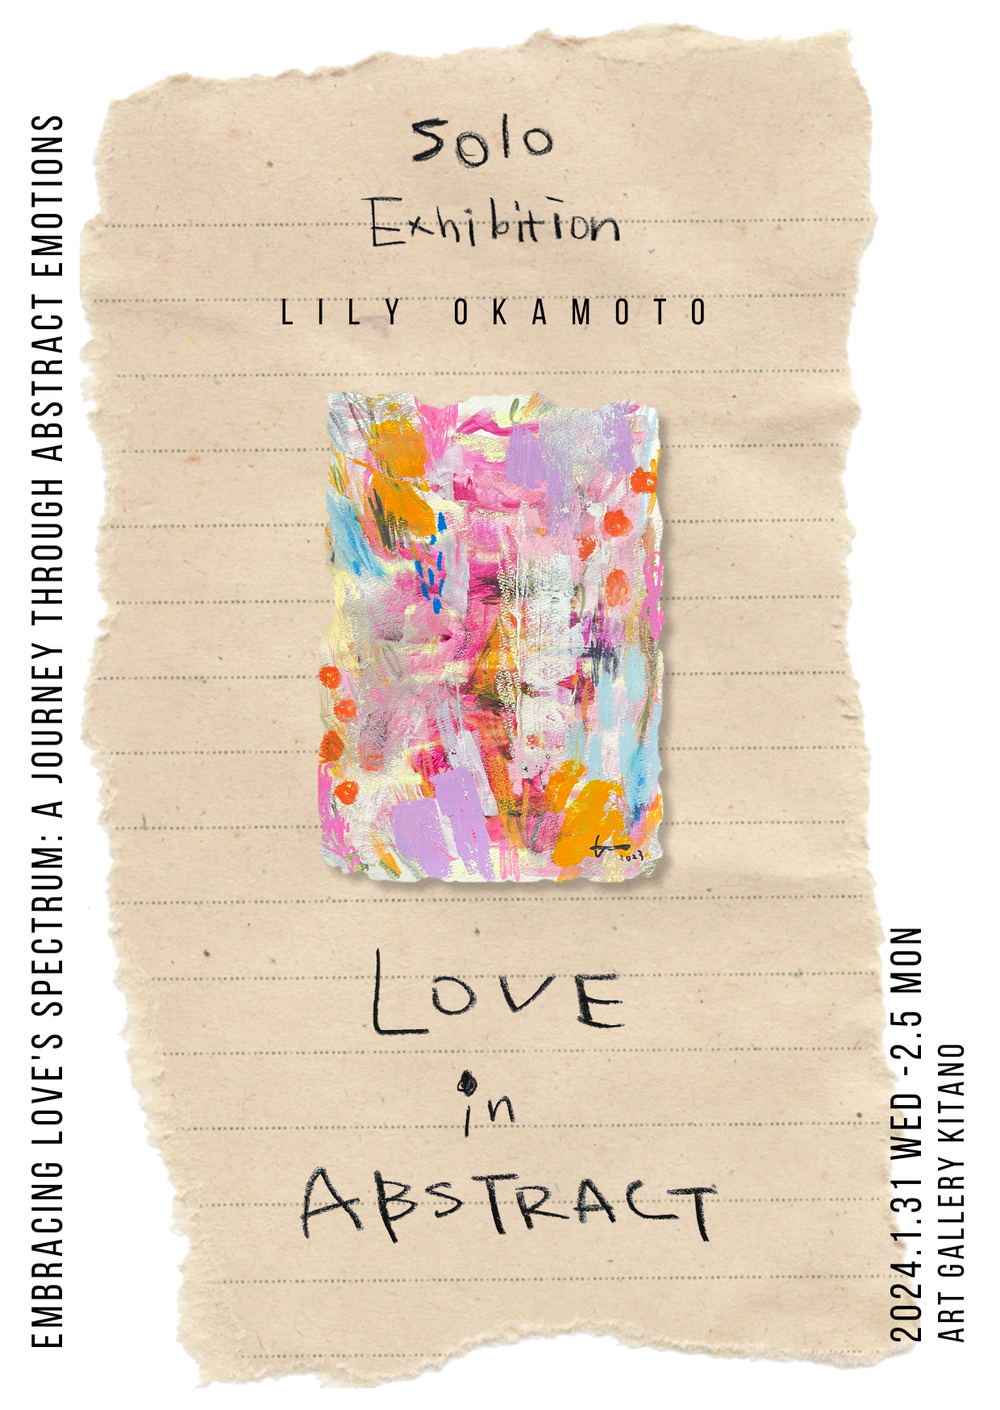 Solo
Exhibition
LILY OKAMOTO
2023
LOVE
in
ABSTRACT
EMBRACING LOVE'S SPECTRUM: A JOURNEY THROUGH ABSTRACT EMOTIONS
2024.1.31 WED -2.5 MON
ART GALLERY KITANO